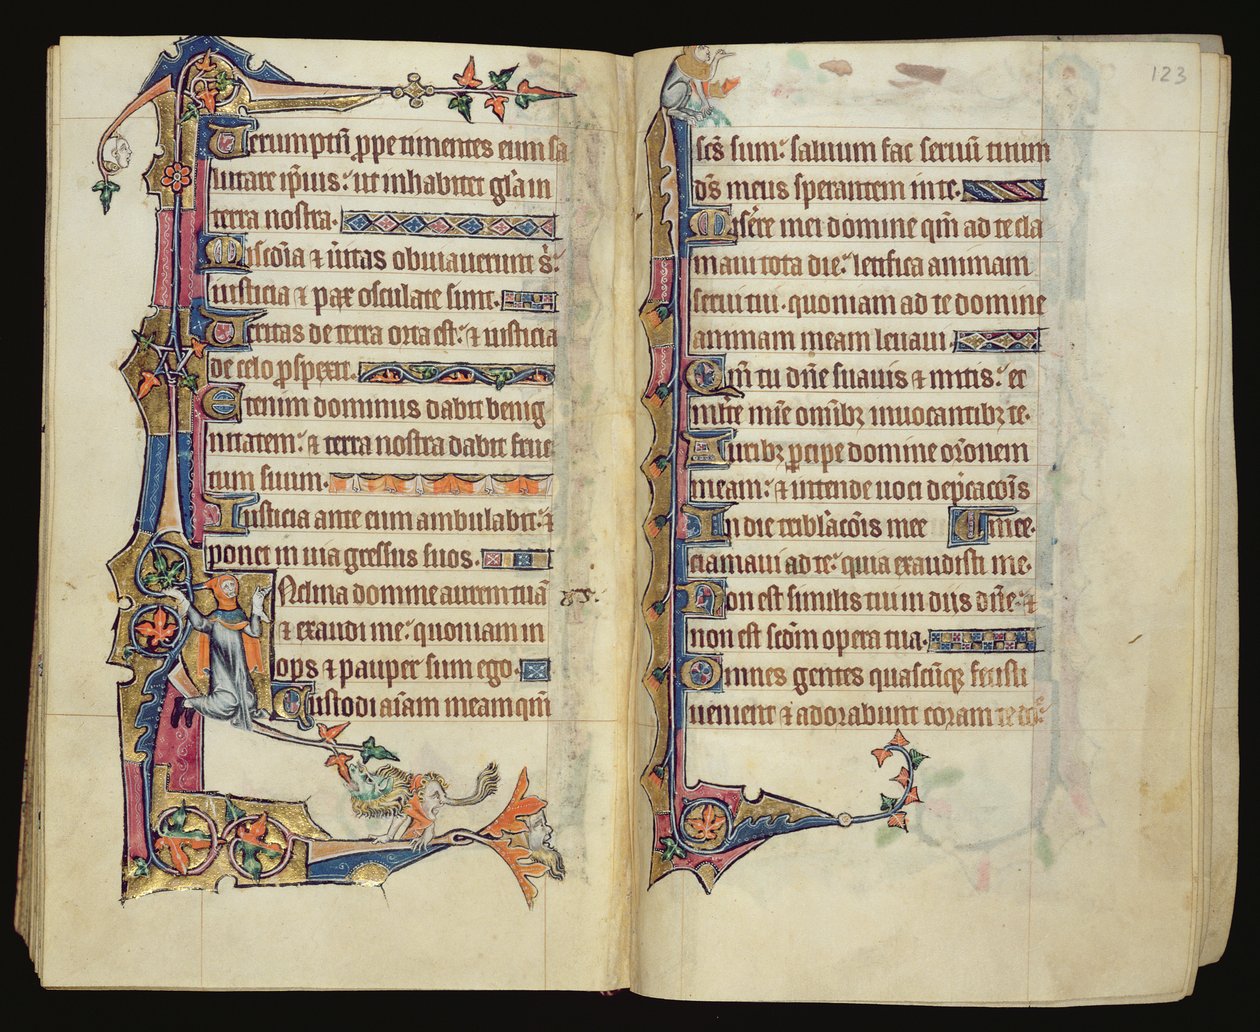 Verumptn̄ ꝓpe timentes eum sa
lutare ip̄ius: ut inhabitet gl̄a in
terra nostra.
Misc̄dia ⁊ ūitas obuiauerunt s:̄
iusticia ⁊ pax osculate sunt.
Veritas de terra orta est: ⁊ iusticia
de celo ꝓspexit.
Etenim dominus dabit benig
nitatem: ⁊ terra nostra dabit fruc
tum suum.
Iusticia ante eum ambulabit: ⁊
ponet in uia gressus suos.
INclina domine aurem tuā
⁊ exaudi me: quoniam in
ops ⁊ pauper sum ego.
Custodi aīam meam qm̄
123
sc̄s sum: saluum fac seruū tuum
ds̄ meus sperantem in te.
Misēre mei domine qm̄ ad te cla
maui tota die: letifica animam
serui tui. quoniam ad te domine
animam meam leuaui.
Qm̄ tu dn̄e suauis ⁊ mitis: et
mīte mīe omībꝫ inuocantibꝫ te.
Auribꝫ ꝑcipe domine or̄onem
meam: ⁊ intende uoci dep̄cac̄ois
In die tribl̄ac̄ois mee mee.
clamaui ad te: quia exaudisti me.
Non est similis tui in diis dn̄e: ⁊
non est sc̄dm opera tua.
Omnes gentes quascūqꝫ fecisti
uenient ⁊ adorabunt coram te